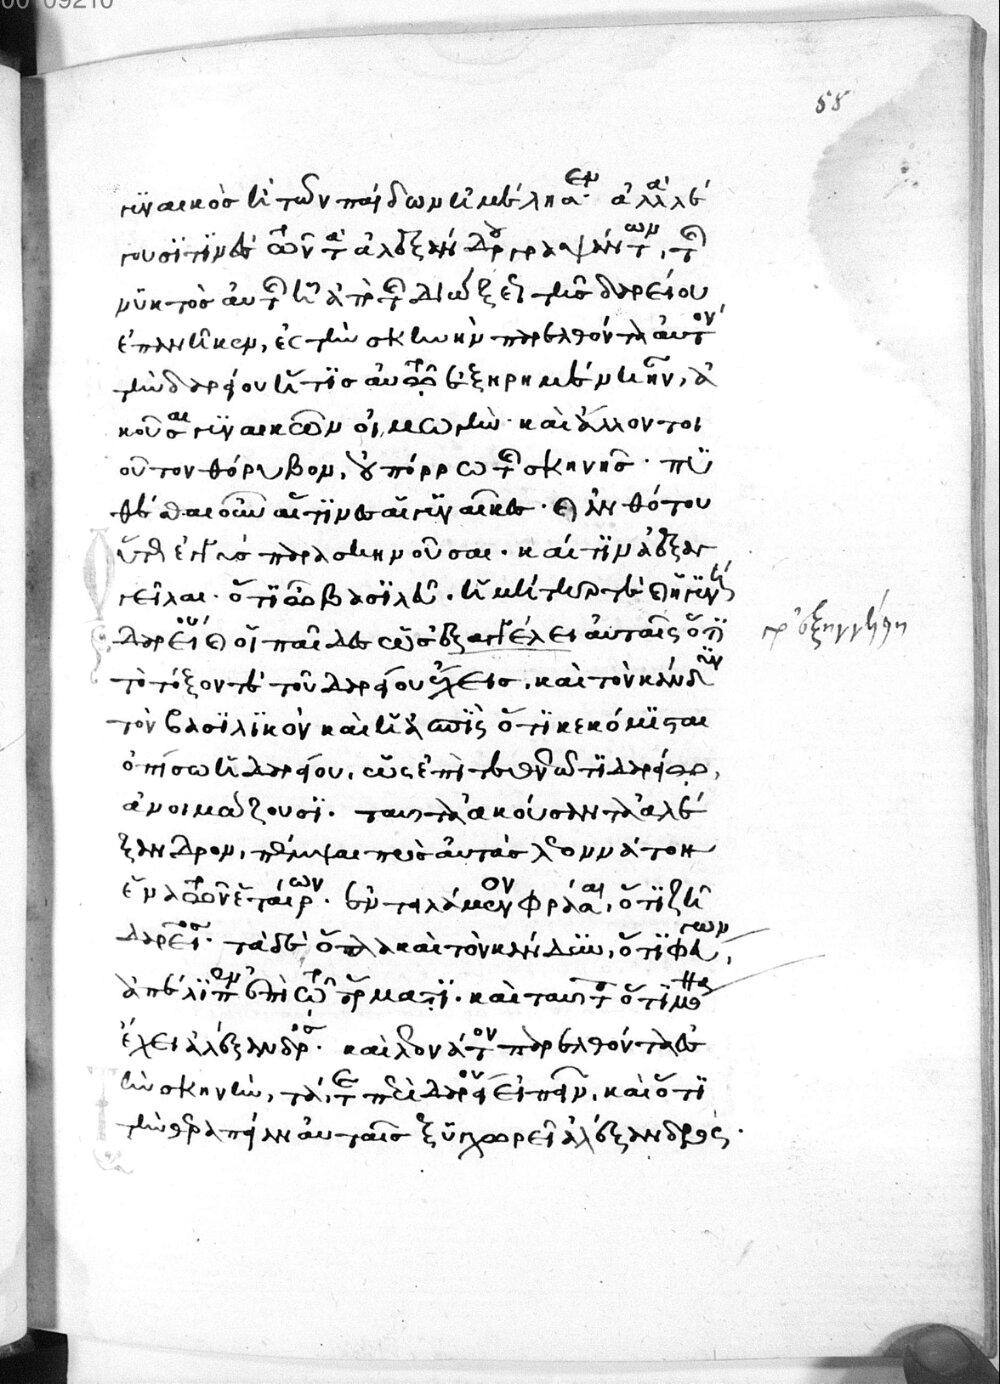 γυναικὸς καὶ τῶν παίδων καὶ ἠμέλησεν· ἀλλὰ λέ
γουσί τινες τῶν τὰ ἀλεξάνδρου γραψάντων, τῆς
νυκτὸς αὐτῆς ᾗ ἀπὸ τῆς διώξεως τῆς δαρείου
ἐπανῆκεν, ἐς τὴν σκηνὴν παρελθόντα αὐτὸν
τὴν δαρείου ἥτις αὐτῷ ἐξῃρημένη ἦν, ἀ
κοῦσαι γυναικῶν οἰμωγὴν· καὶ ἄλλον τοι
οῦτον θόρυβον, οὐ πόρρω τῆς σκηνῆς· πυ
θέσθαι οὖν αἵτινες αἱ γυναῖκες· καὶ ἀνθότου
οὕτως ἐγγὺς παρασκηνοῦσαι· καί τινα ἐξαγ
γεῖλαι· ὅτι ὦ βασιλεῦ· ἡ μήτηρ τε καὶ ἡ γυνὴ
δαρείου καὶ οἱ παῖδες ὡς ἐξαγγέλει αὐταῖς ὅτι
τὸ τόξον τε τοῦ δαρείου ἔχεις, καὶ τὸν κάνδυν
τὸν βασιλικὸν καὶ ἡ ἀσπὶς ὅτι κεκόμισται
ὀπίσω ἡ δαρείου, ὡς ἐπὶ τεθνεῶτι δαρείῳ,
ἀνοιμώζουσι. ταῦτα ἀκούσαντα ἀλέ
ξανδρον, πέμψαι πρὸς αὐτὰς λεοννάτον
ἕνα τῶν ἑταίρων· ἐντειλάμενον φράσαι, ὅτι ζῇ
δαρεῖος· τὰ δὲ ὅπλα καὶ τὸν κάνδυν, ὅτι φεύγων,
ἀπέλιπεν ἐπὶ τῷ ἅρματι· καὶ ταῦτα ὅτι μόνα
ἔχει ἀλέξανδρος· καὶ λεονάτον παρελθόντα ἐς
τὴν σκηνὴν, τά, τε περὶ δαρείου εἰπεῖν, καὶ ὅτι
τὴν θεραπείαν αὐταῖς ξυγχωρεῖ ἀλέξανδρος·